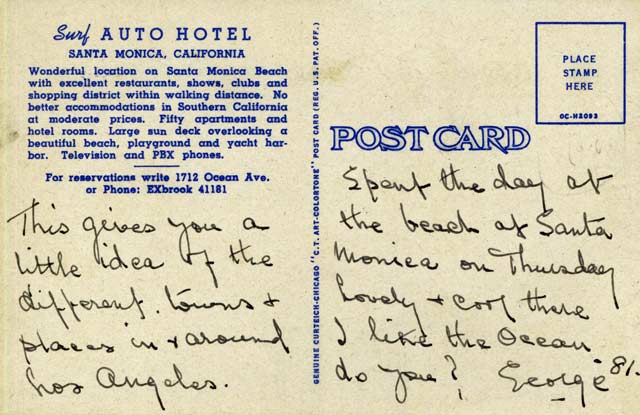 Surf AUTO HOTEL
SANTA MONICA, CALIFORNIA
Wonderful location on Santa Monica Beach
with excellent restaurants, shows, clubs and
shopping district within walking distance. No
better accommodations in Southern California
at moderate prices. Fifty apartments and
hotel rooms. Large sun deck overlooking a
beautiful beach, playground and yacht har-
bor. Television and PBX phones.
For reservations write 1712 Ocean Ave.
or Phone: EXbrook 41181
This gives you a
little idea of the
different towns +
places in + around
Los Angeles.
GENUINE CURTEICH-CHICAGO "C.T. ART-COLORTONE" POST CARD (REG. U.S. PAT. OFF.)
PLACE
STAMP
HERE
OC-H2093
POST CARD
Spent the day at
the beach at Santa
Monica on Thursday
Lovely + cool there
I like the Ocean
do you? George 81.